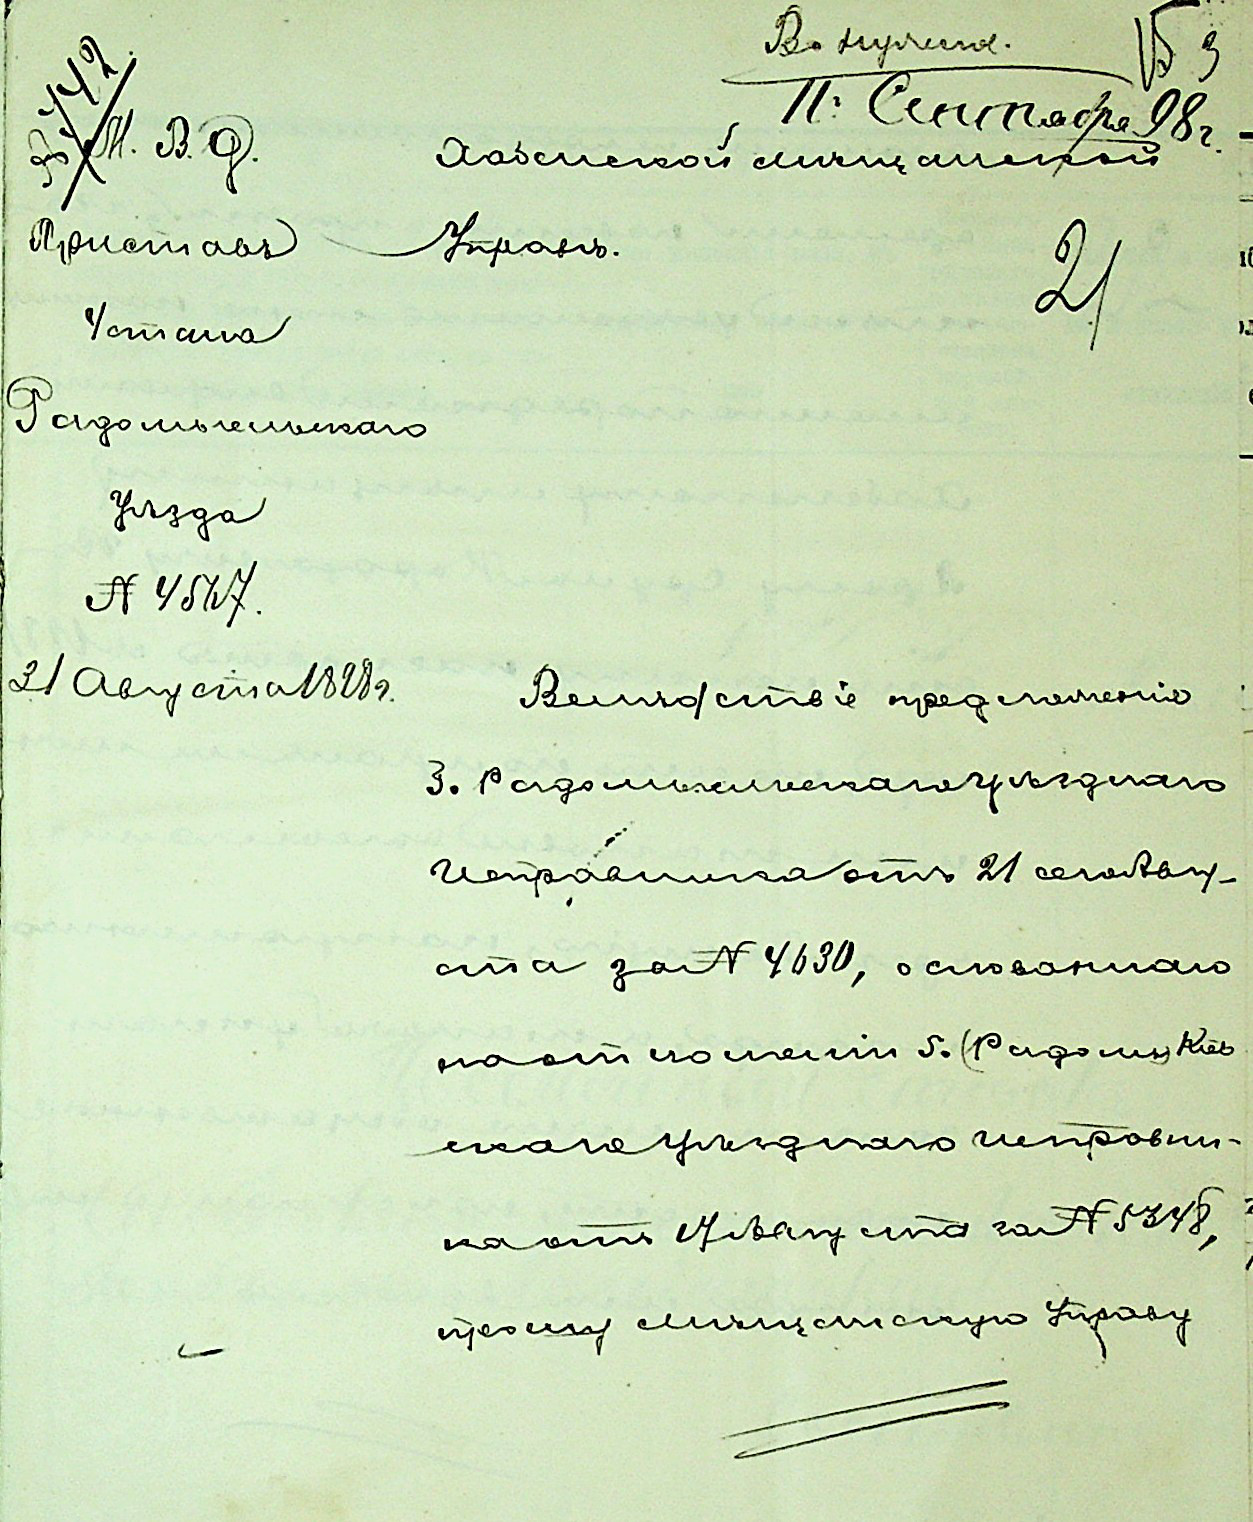 Получена.
11 Сентября 98 г.
М. В. Д.
Приставъ
4 стана
Радомысльскаго
Уѣзда
№ 4567.
31 Августа 1898 г.
21
Хабенской мѣщанской
Управѣ.
Вслѣдствіе предложенія
З. Радомысльскаго Уѣзднаго
Исправника отъ 21 сего Авгу-
ста за № 4630, основаннаго
на отношеніи
скаго Уѣзднаго Исправни-
ка отъ 17 Августа за № 5348,
прошу мѣщанскую Управу